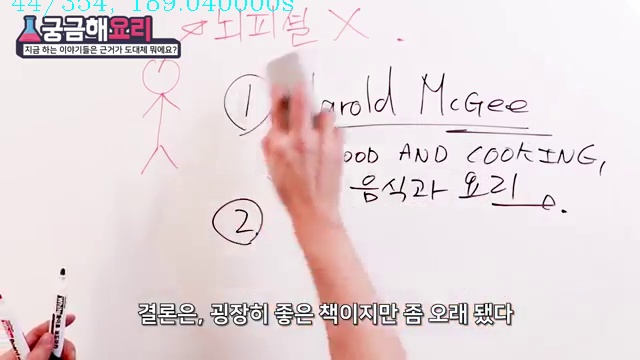 44/354, 189.040000s
궁금해요리
지금 하는 이야기들은 근거가 도대체 뭐에요?
뇌피셜 X.
① Harold McGee
FOOD AND COOKING,
음식과 요리.
②
결론은, 굉장히 좋은 책이지만 좀 오래 됐다